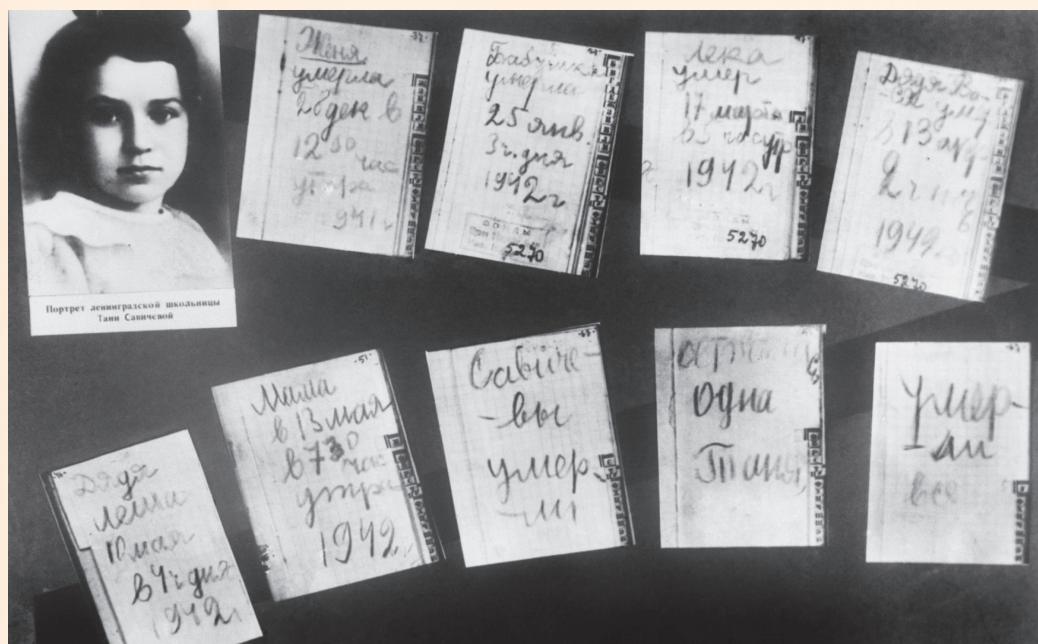 Портрет ленинградской школьницы
Тани Савичевой
Женя
умерла
28 дек в
12
час
утра
941 г
Бабушка
умерла
25 янв.
3 ч. дня
1942 г
5270
Лека
умер
17 марта
в 5 час утр
1942 г
5270
Дядя Ва-
-ся
в 13 апр
2 ч
1942 г
5270
Дядя
Леша
10 мая
в 4 ч дня
1942 г
Мама
в 13 мая
в 7 30
час
утра
1942 г
Савиче-
-вы
умер-
-ли
одна
Таня
умер-
-ли
все